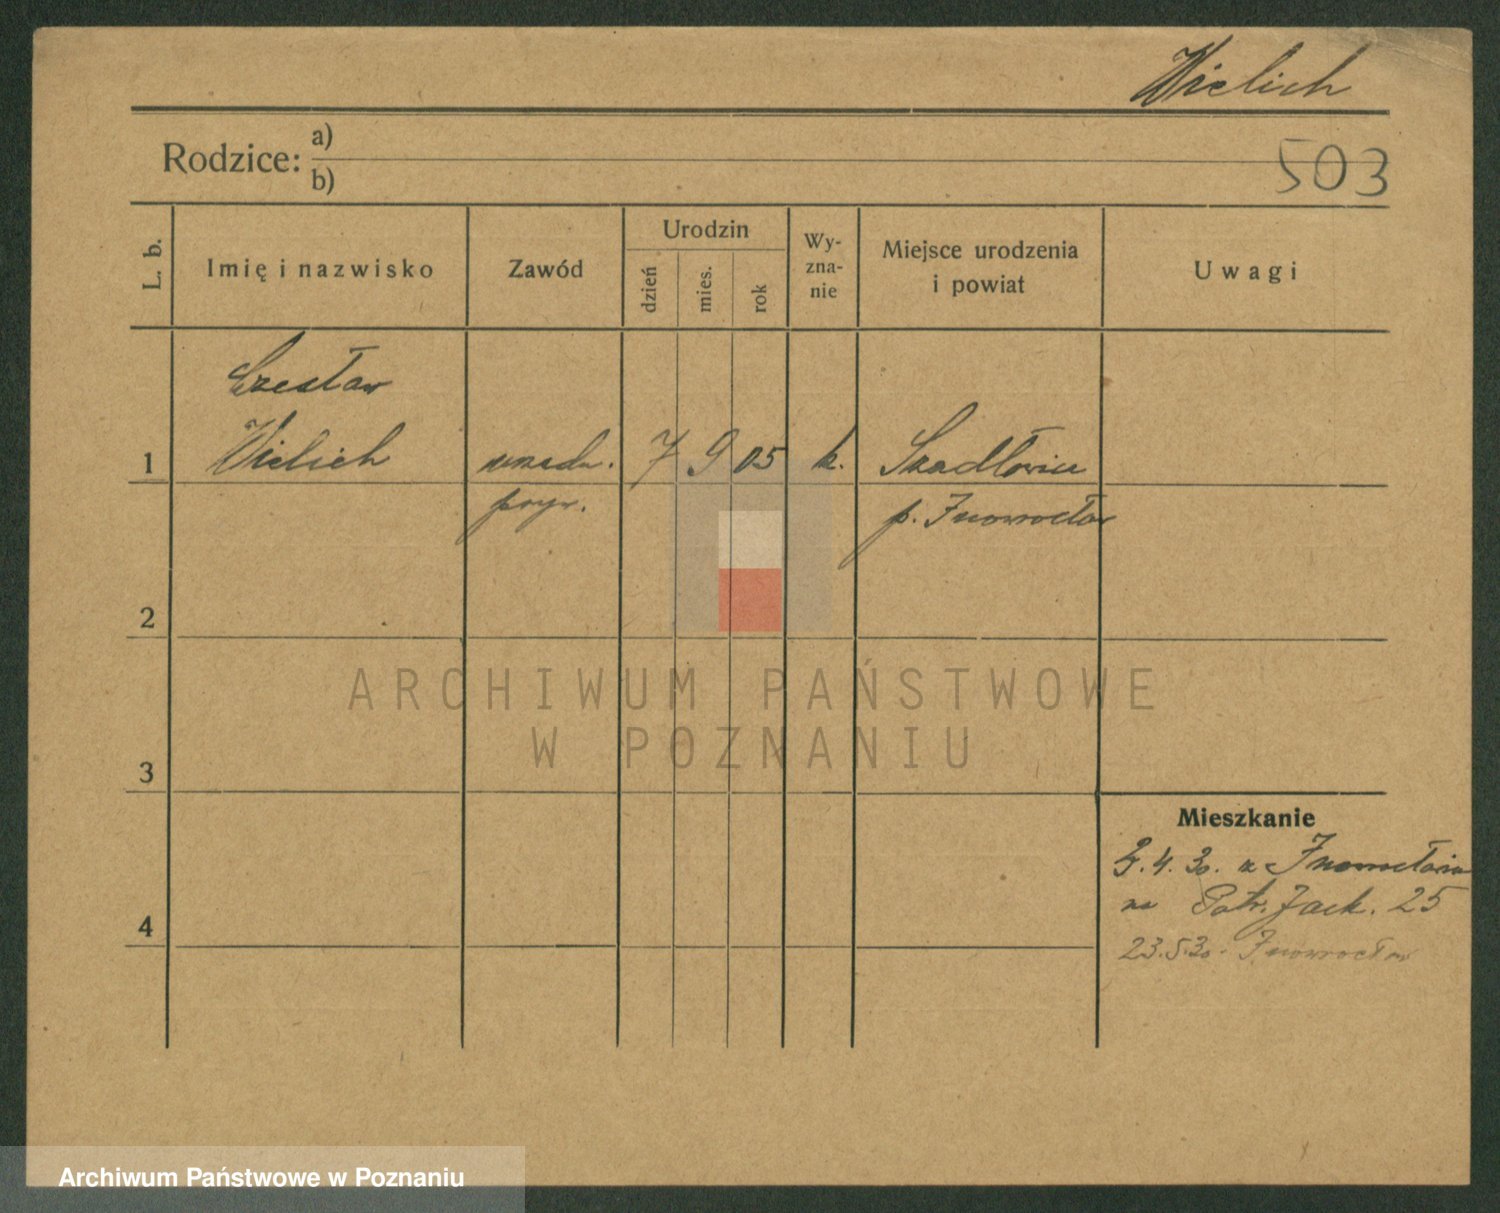 Wielich
Rodzice: a)
b)
503
L. b.
Imię i nazwisko
Zawód
Urodzin
dzień
mies.
rok
Wy-
zna-
nie
Miejsce urodzenia
i powiat
Uwagi
Czesław
1 Wielich urzędn. 7 9 05 k. Szadłowice
pryw. p. Inowrocław
2
3
4
Mieszkanie
4.30. z Inowrocławia
na Patr. Jack. 25
23.5.30. Inowrocław
ARCHIWUM PAŃSTWOWE
W POZNANIU
Archiwum Państwowe w Poznaniu